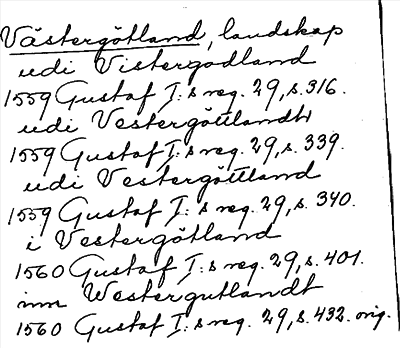 Västergötland, landskap
udi Vistergodland
1559 Gustaf I:s reg. 29, s. 316.
udi Vestergöttlandt
1559 Gustaf I:s reg. 29, s. 339.
udi Vestergöttland
1559 Gustaf I:s reg. 29, s. 340.
i Vestergötland
1560 Gustaf I:s reg. 29, s. 401.
inn Westergutlandt
1560 Gustaf I:s reg. 29, s. 432. orig.